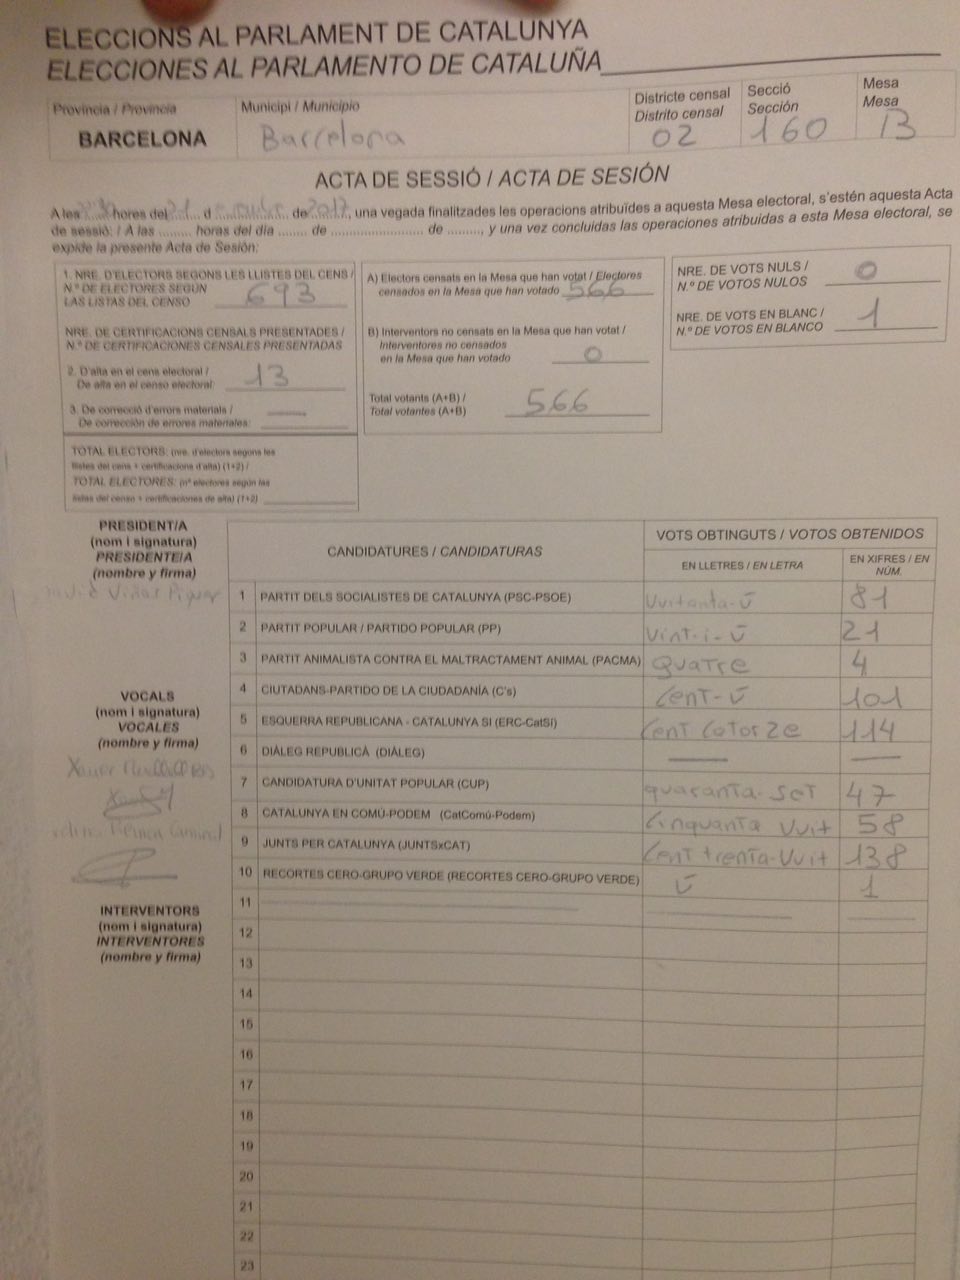 ELECCIONS AL PARLAMENT DE CATALUNYA
ELECCIONES AL PARLAMENTO DE CATALUÑA
Provincia / Provincia
BARCELONA
Municipi / Municipio
Barcelona
Districte censal
Distrito censal
02
Secció
Sección
160
Mesa
Mesa
B
ACTA DE SESSIÓ / ACTA DE SESIÓN
A les hores del 21 d de 2017, una vegada finalitzades les operacions atribuïdes a aquesta Mesa electoral, s'estén aquesta Acta
de sessió: / A las ......... horas del día ........ de .......................... de ........., y una vez concluidas las operaciones atribuidas a esta Mesa electoral, se
expide la presente Acta de Sesión:
1. NRE. D'ELECTORS SEGONS LES LLISTES DEL CENS /
N.º DE ELECTORES SEGÚN
LAS LISTAS DEL CENSO 693
NRE. DE CERTIFICACIONS CENSALS PRESENTADES /
N.º DE CERTIFICACIONES CENSALES PRESENTADAS
2. D'alta en el cens electoral /
De alta en el censo electoral: 13
3. De correcció d'errors materials /
De corrección de errores materiales: —
TOTAL ELECTORS: (nre. d'electors segons les
llistes del cens + certificacions d'alta) (1+2) /
TOTAL ELECTORES: (nº electores según las
listas del censo + certificaciones de alta) (1+2)
A) Electors censats en la Mesa que han votat / Electores
censados en la Mesa que han votado 566
B) Interventors no censats en la Mesa que han votat /
Interventores no censados
en la Mesa que han votado 0
Total votants (A+B) /
Total votantes (A+B) 566
NRE. DE VOTS NULS /
N.º DE VOTOS NULOS 0
NRE. DE VOTS EN BLANC /
N.º DE VOTOS EN BLANCO 1
PRESIDENT/A
(nom i signatura)
PRESIDENTE/A
(nombre y firma)
David Viñas Piquer
VOCALS
(nom i signatura)
VOCALES
(nombre y firma)
Xavier
INTERVENTORS
(nom i signatura)
INTERVENTORES
(nombre y firma)
CANDIDATURES / CANDIDATURAS
VOTS OBTINGUTS / VOTOS OBTENIDOS
EN LLETRES / EN LETRA
EN XIFRES / EN
NÚM.
1 PARTIT DELS SOCIALISTES DE CATALUNYA (PSC-PSOE) Vuitanta-ú 81
2 PARTIT POPULAR / PARTIDO POPULAR (PP) Vint-i-ú 21
3 PARTIT ANIMALISTA CONTRA EL MALTRACTAMENT ANIMAL (PACMA) quatre 4
4 CIUTADANS-PARTIDO DE LA CIUDADANÍA (C's) Cent-ú 101
5 ESQUERRA REPUBLICANA - CATALUNYA SI (ERC-CatSí) Cent Catorze 114
6 DIÀLEG REPUBLICÀ (DIÀLEG) — —
7 CANDIDATURA D'UNITAT POPULAR (CUP) quaranta-set 47
8 CATALUNYA EN COMÚ-PODEM (CatComú-Podem) Cinquanta Vuit 58
9 JUNTS PER CATALUNYA (JUNTSxCAT) Cent trenta-Vuit 138
10 RECORTES CERO-GRUPO VERDE (RECORTES CERO-GRUPO VERDE) ú 1
11
12
13
14
15
16
17
18
19
20
21
22
23